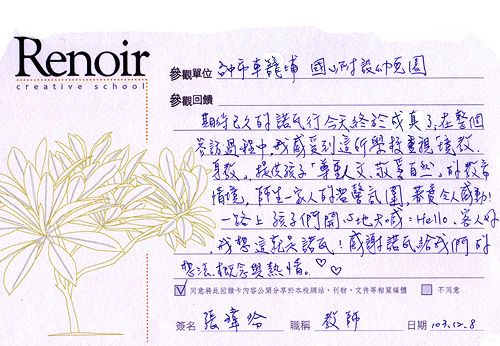 Renoir
creative school
參觀單位 台中市車籠埔國小附設幼兒園
參觀回饋
期待已久的諾氏行今天終於成真了，在整個
參訪過程中，我感受到這所學校重視「境教、
身教」，提供孩子「尊重人文、敬愛自然」的教育
情境，師生一家人的溫馨氛圍，著實令人感動！
一路上孩子們開心地大喊：Hello、客人好，
我想這就是諾氏！感謝諾氏給我們的
想法、概念與熱情。♡♡
☑ 同意將此回饋卡內容公開分享於本校網站、刊物、文件等相關媒體 □ 不同意
簽名 張瑋玲 職稱 教師 日期 103.12.8